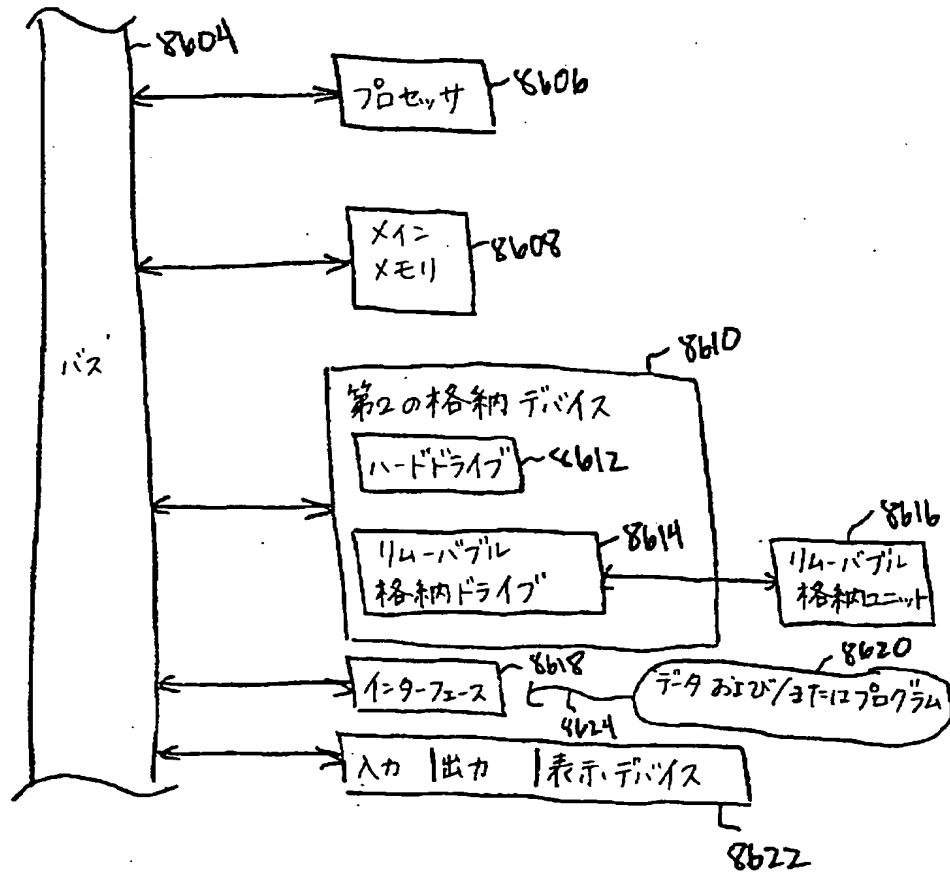 8604
プロセッサ
8606
メイン
メモリ
8608
バス
8610
第2の格納デバイス
ハードドライブ
8612
リムーバブル
格納ドライブ
8614
8616
リムーバブル
格納ユニット
8618
インターフェース
8620
データおよび/またはプログラム
8624
入力 |出力 |表示デバイス
8622